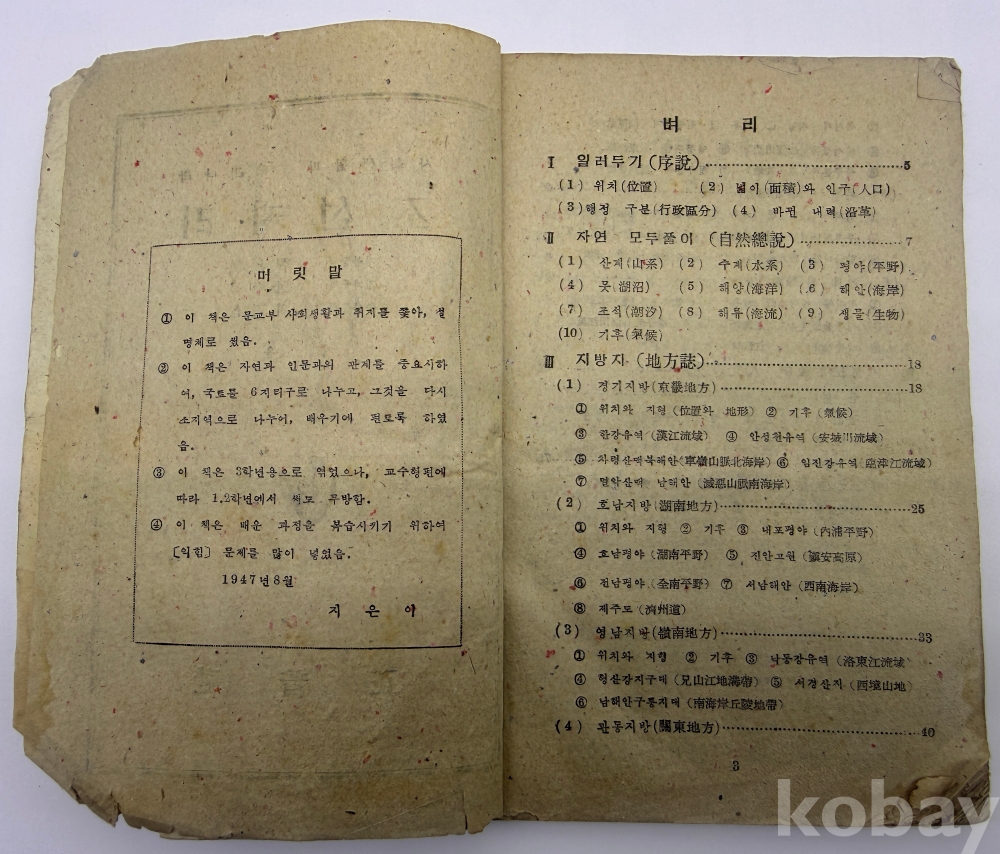 머릿말
① 이 책은 문교부 사회생활과 취지를 쫓아, 설
명체로 썼음.
② 이 책은 자연과 인문과의 관계를 중요시하
여, 국토를 6지리구로 나누고, 그것을 다시
소지역으로 나누어, 배우기에 편토록 하였
음.
③ 이 책은 3학년용으로 엮었으나, 교수형편에
따라 1.2학년에서 써도 무방함.
④ 이 책은 배운 과정을 복습시키기 위하여
〔익힘〕 문제를 많이 넣었음.
1947년8월
지은이
벼리
Ⅰ 일러두기 (序說) 5
(1) 위치(位置) (2) 넓이(面積)와 인구(人口)
(3)행정 구분(行政區分) (4) 바뀐 내력(沿革)
Ⅱ 자연 모두풀이 (自然總說) 7
(1) 산계(山系) (2) 수계(水系) (3) 평야(平野)
(4) 못(湖沼) (5) 해양(海洋) (6) 해안(海岸)
(7) 조석(潮汐) (8) 해류(海流) (9) 생물(生物)
(10) 기후(氣候)
Ⅲ 지방지 (地方誌) 18
(1) 경기지방(京畿地方) 18
① 위치와 지형 (位置와 地形) ② 기후 (氣候)
③ 한강유역 (漢江流域) ④ 안성천유역 (安城川流域)
⑤ 차령산맥북해안(車嶺山脈北海岸) ⑥ 임진강유역 (臨津江流域)
⑦ 멸악산맥 남해안 (滅惡山脈南海岸)
(2) 호남지방(湖南地方) 25
① 위치와 지형 ② 기후 ③ 내포평야 (內浦平野)
④ 호남평야 (湖南平野) ⑤ 진안고원 (鎭安高原)
⑥ 전남평야 (全南平野) ⑦ 서남해안 (西南海岸)
⑧ 제주도 (濟州道)
(3) 영남지방(嶺南地方) 33
① 위치와 지형 ② 기후 ③ 낙동강유역 (洛東江流域)
④ 형산강지구대 (兄山江地溝帶) ⑤ 서경산지 (西境山地)
⑥ 남해안구릉지대 (南海岸丘陵地帶)
(4) 관동지방(關東地方) 40
3
kobay